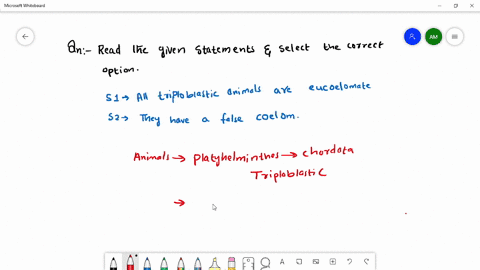 Microsoft Whiteboard
AM
Qn:- Read the given statements & select the correct
option.
S1 → All triploblastic animals are eucoelomate
S2 → They have a false coelom.
Animals → Platyhelminthes → chordata
Triploblastic
→